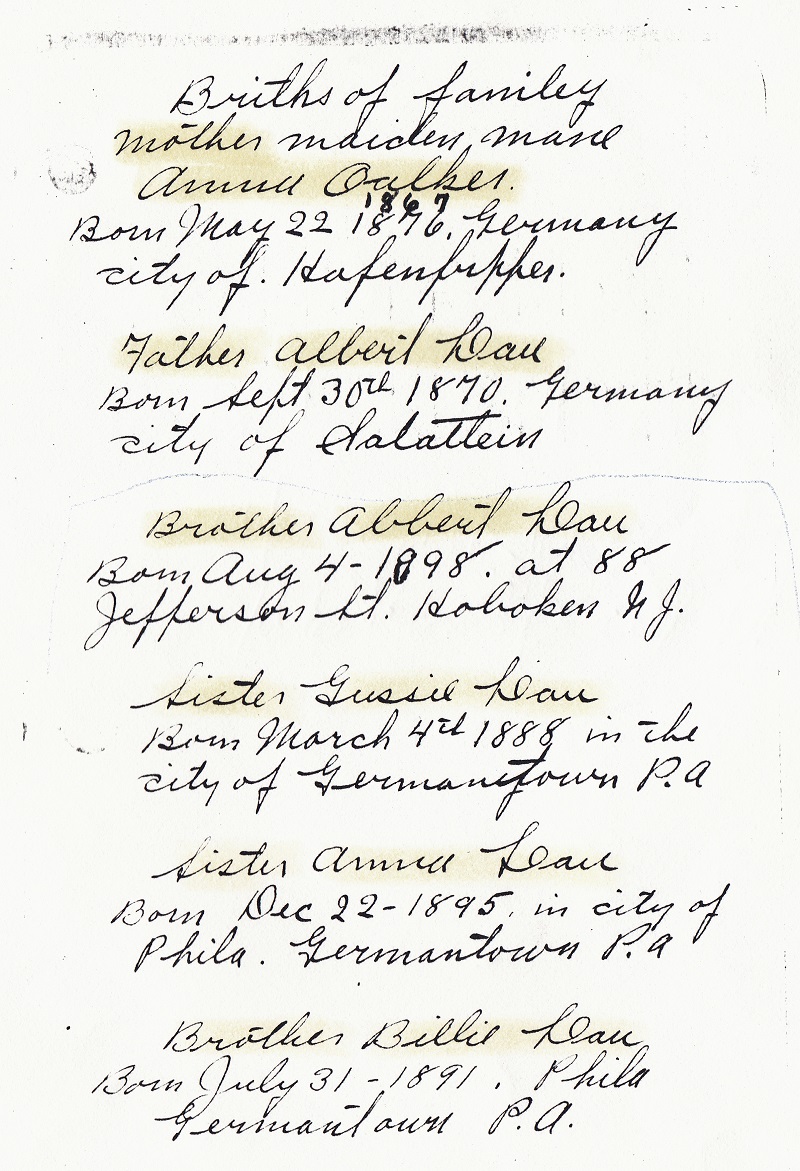 Briths of family
mother maiden mane
Anna Oalker.
1867
Born May 22 1876. Germany
city of. Hafenfripper.
Father Albert Dau
Born Sept 30th 1870. Germany
city of Salattein
Brother Abbert Dau
Born Aug 4-1898. at 88
Jefferson St. Hoboken N.J.
Sister Gussie Dau
Born March 4th 1888 in the
city of Germanetown P.a
Sister Anna Dau
Born Dec 22-1895. in city of
Phila. Germantown P.a
Brother Billie Dau
Born July 31-1891. Phila
Germantown P.A.